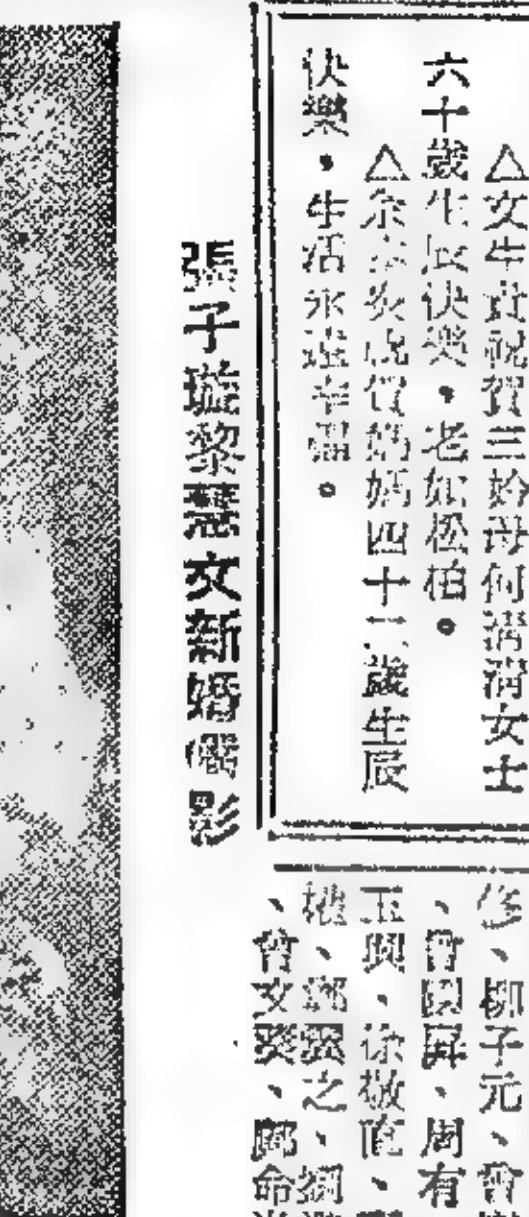 △女牛貴祝賀三妗母何湑湑女士
六十歲生辰快樂，老如松柏。
△余炎祝賀媽媽四十二歲生辰
快樂，生活永遠幸福。
張子璇黎慧文新婚儷影
修、柳子元、曾
、曾國屏、周有
玉興、徐敬直、
、鄭翼之、
、曾文葵、鄺命